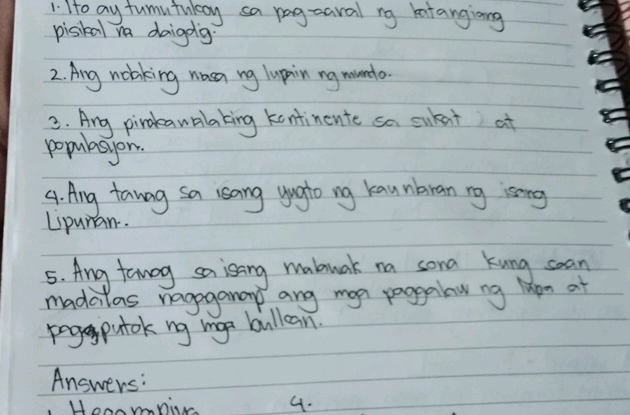 1. Ito ay tumutukoy sa pag-aaral ng katangiang
pisikal na daigdig.
2. Ang malaking masa ng lupain ng mundo.
3. Ang pinakamalaking kontinente sa sukat at
populasyon.
4. Ang tawag sa isang yugto ng kaunlaran ng isang
Lipunan.
5. Ang tawag sa isang malawak na sona kung saan
madalas nagaganap ang mga paggalaw ng lupa at
pagputok ng mga bulkan.
Answers:
4.